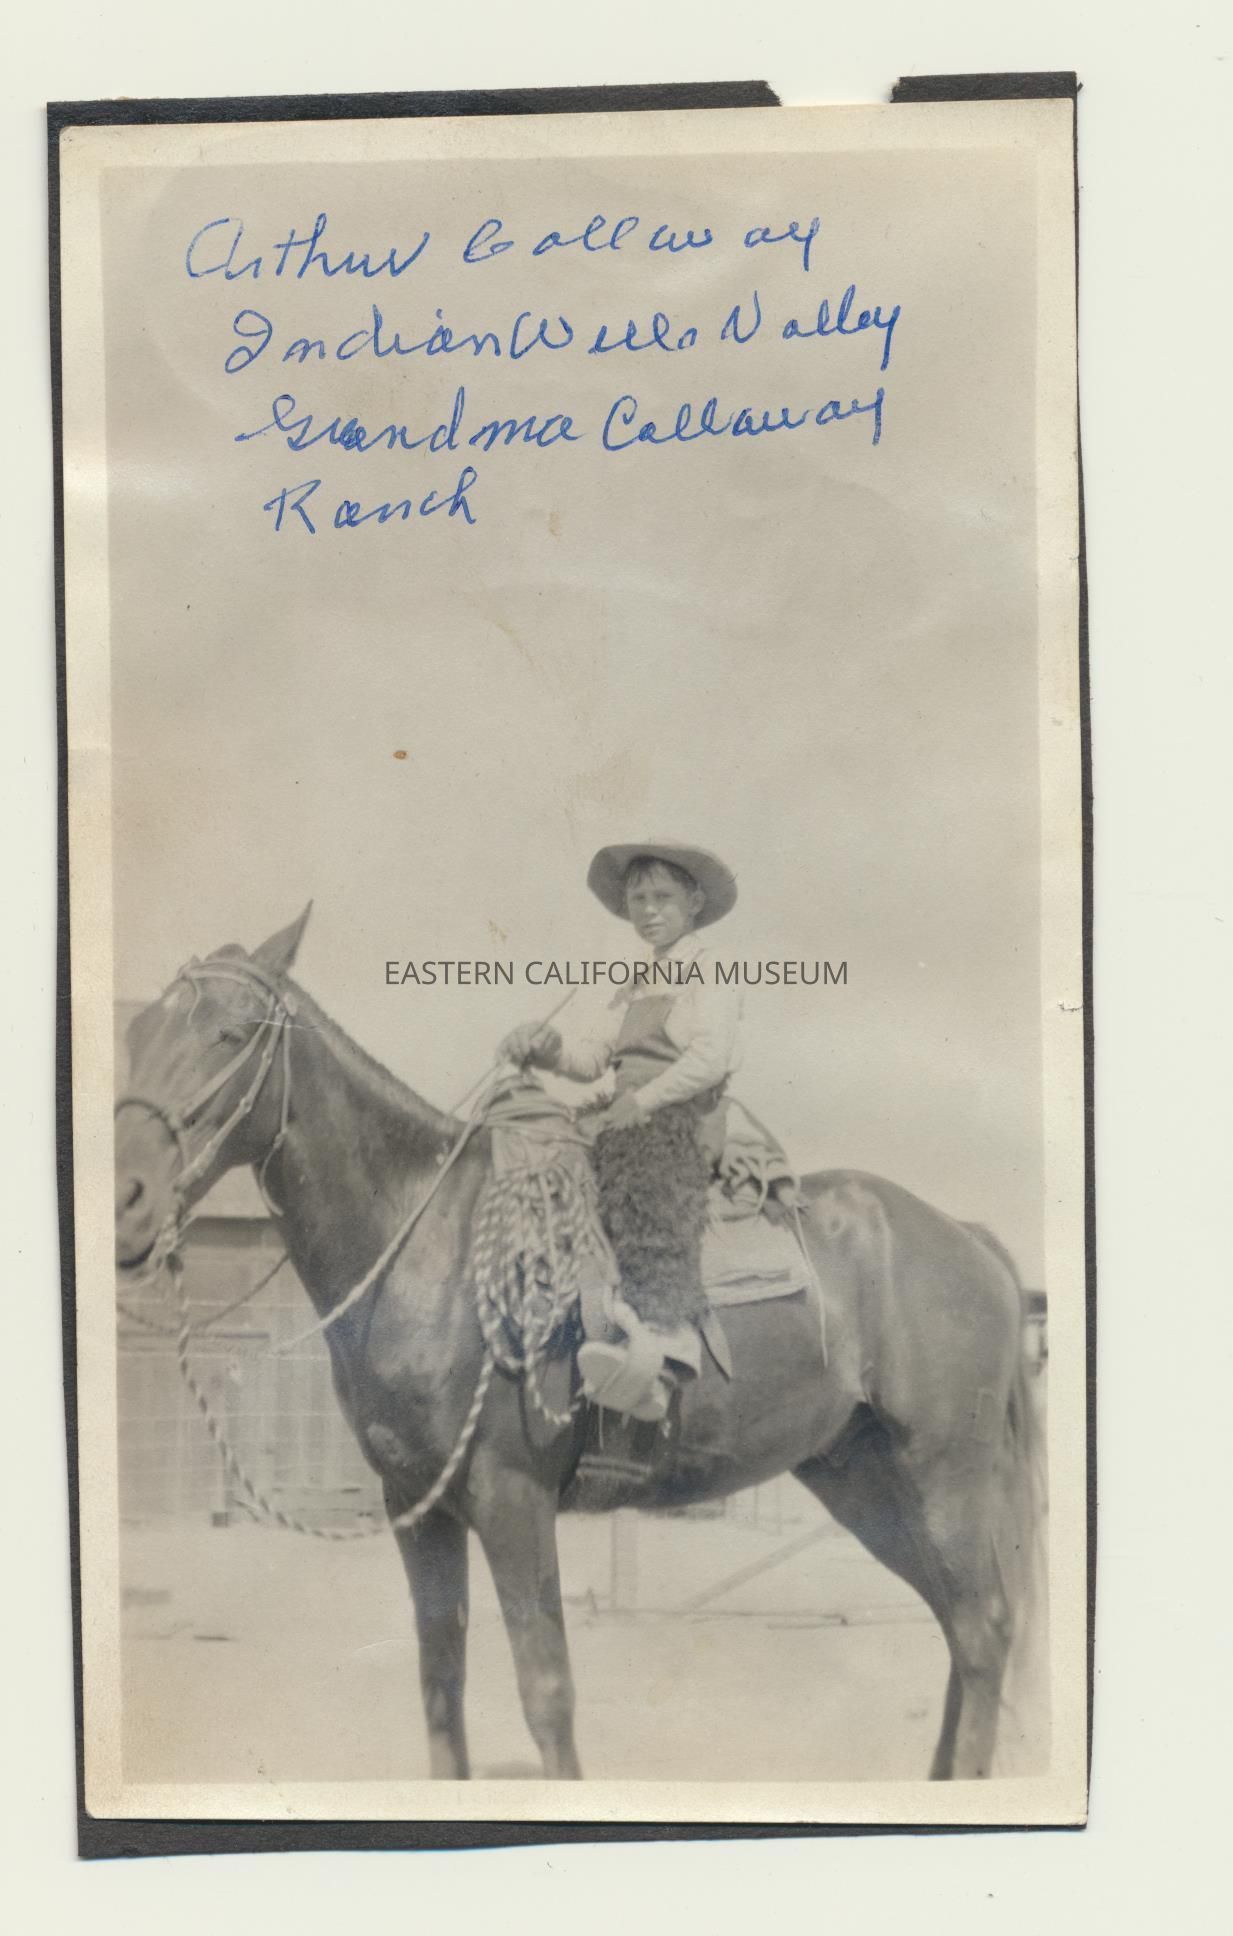 Arthur Callaway
Indian Wells Valley
Grandma Callaway
Ranch
EASTERN CALIFORNIA MUSEUM